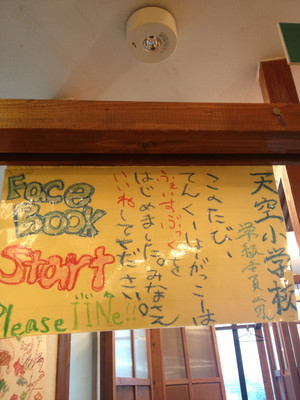 天空小学校
このたび、
てんくうしょうがっこうは
ふぇいすぶっくを
はじめました。みなさん
いいねしてください。
Face
Book
Start
Please IINe!!
いいね